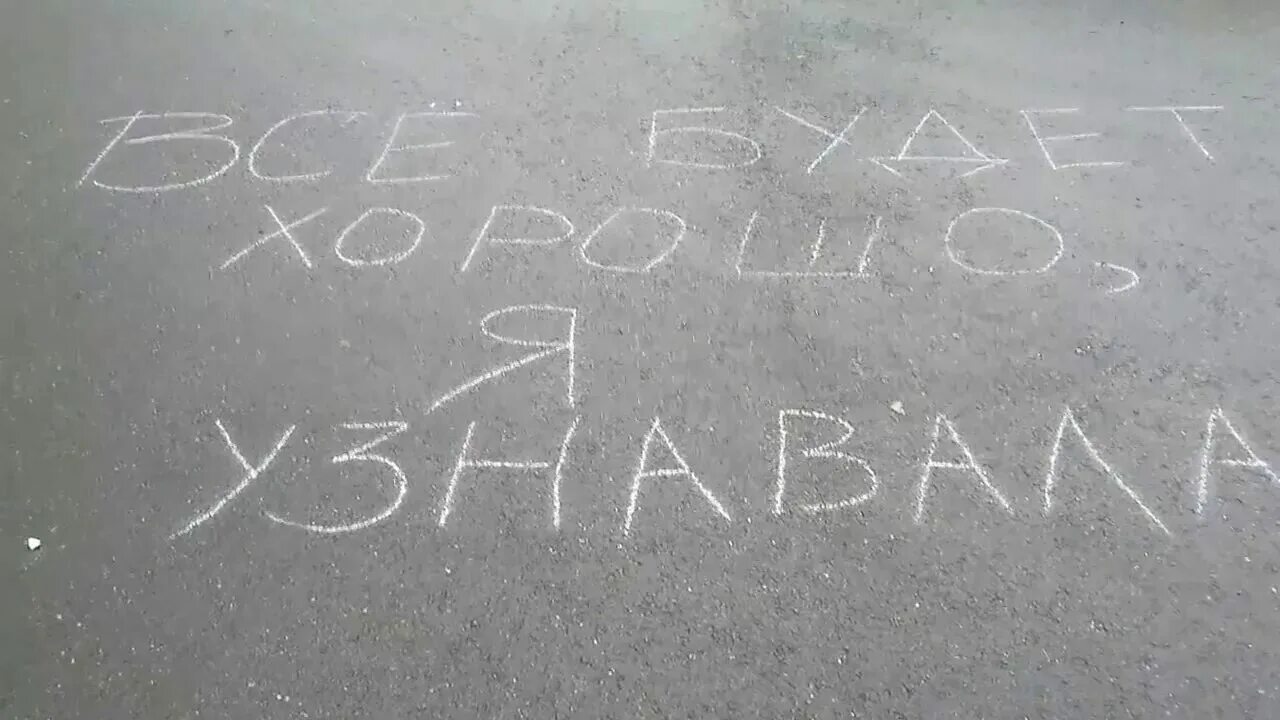 ВСЁ БУДЕТ
ХОРОШО,
Я
УЗНАВАЛА